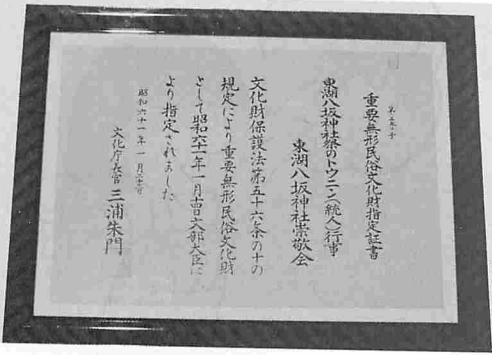 重要無形民俗文化財指定証書
東湖八坂神社祭のトウニン(統人)行事
東湖八坂神社崇敬会
文化財保護法第五十六条の十の
規定により重要無形民俗文化財
として昭和六十一年一月十四日文部大臣に
より指定されました
昭和六十一年一月
文化庁長官 三浦朱門